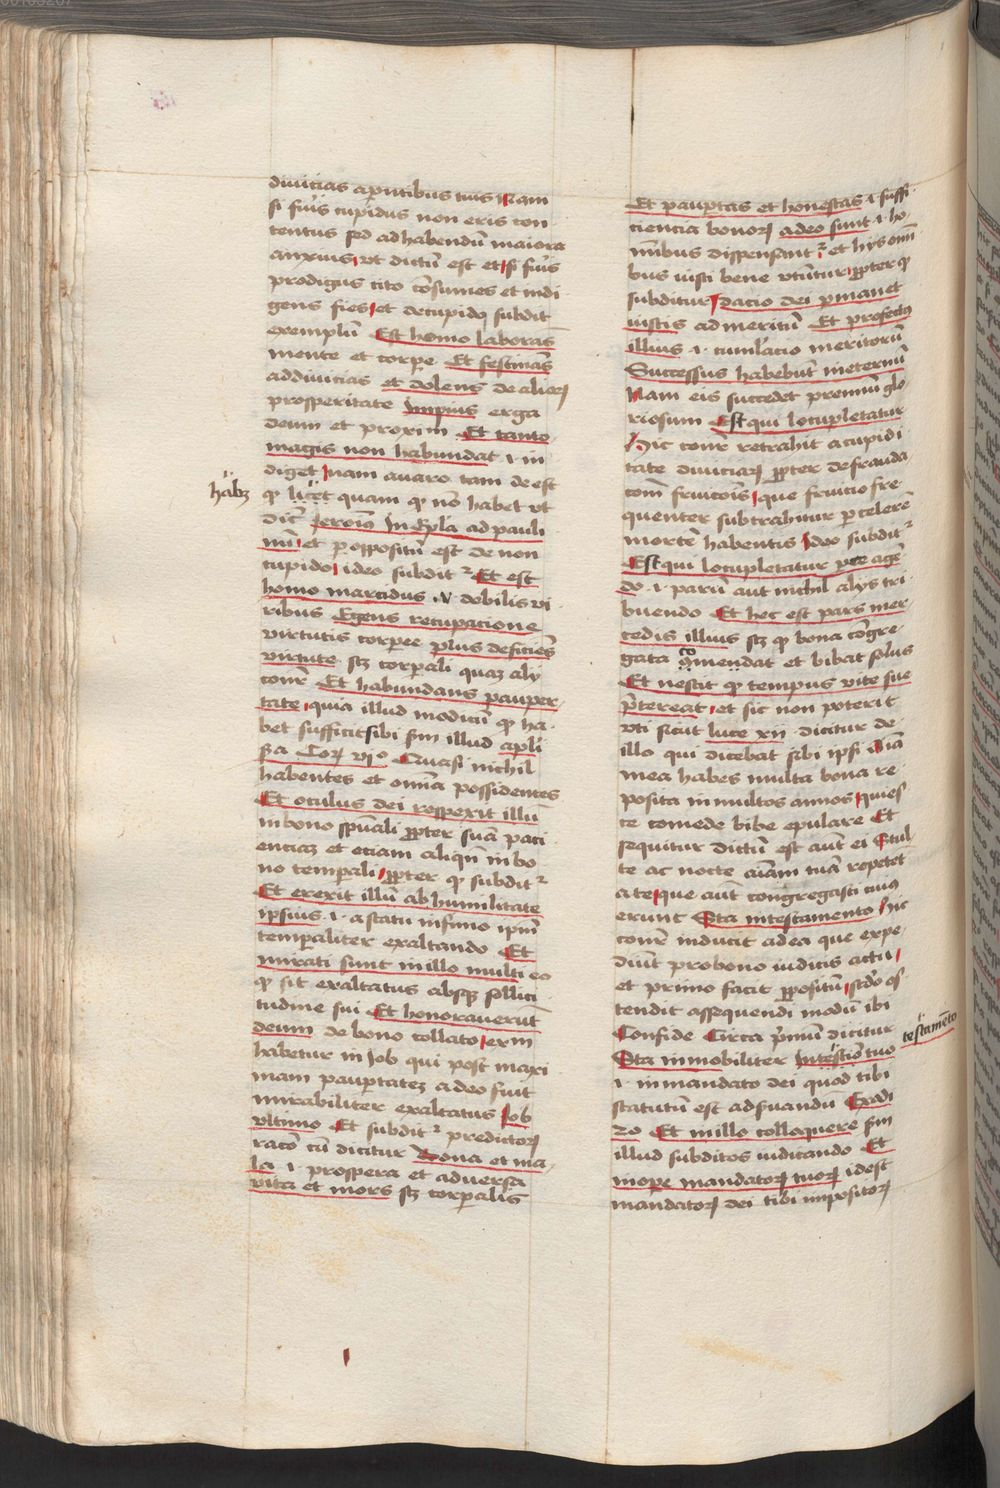 diuicias apetitibus tuis Nam
si fueris cupidus non eris con
tentus sed ad habendū maiora
anxius vt dictū est et si fueris
prodigus cito cōsumes et indi
gens fies et de cupido subdit
exemplū Est homo laborans
mente et corpore Et festinans
ad diuicias et dolens de alior
prosperitate Impius erga
deum et proximū Et tanto
magis non habundat .i. in
diget nam auaro tam deest
q licet quam q nō habet vt
habz
dic Jeronis In Epla ad pauli
nū et p oppositū est de non
cupido ideo subdit Et est
homo marcidus .i. debilis vi
ribus Egens recupacione
virtutis corpee plus deficiēs
virtute sz corpali quaz aly
conr Et habundans pauper
tate quia illud modicū q ha
bet sufficit sibi sm illud apli
ija Cor vio Quasi nichil
habentes et omnia possidentes
Et oculus dei respexit illū
in bono spuali ppter suā paci
enciaz et eciam aliqn in bo
no tempali ppter q subdit
Et erexit illū ab humilitate
ipsius .i. a statu infimo ipm
temporaliter exaltando Et
mirati sunt in illo multi eo
q sit exaltatus absqz sollici
tudine sui Et honorauerūt
deum de bono collato exm
habetur in Job qui post maxi
mam pauptatez adeo fuit
mirabiliter exaltatus Job
vltimo Et subdit predictor
racō cū dicitur Bona et ma
la .i. prospera et aduersa
vita et mors sz corporalis
Et paupertas et honestas .i. suffi
ciencia bonor a deo sunt .i. ho
minibus dispensant et hys omni
bus iusti bene vtūtur ppter q
subditur dacio dei pmanet
iustis ad meritū Et profectus
illius .i. cumlacio meritorū
Successus habebūt ineternū
Nam eis succedet premiū glo
riosum Est qui locupletatur
Hic conr retrahit a cupidi
tate diuiciar ppter defrauda
com fruicois que fruicio fre
quenter subtrahitur p celerē
mortē habentis Ideo subdit
Est qui locupletatur pce agē
do .i. parū aut nichil alys tri
buendo Et hec est pars mer
cedis illius sz q bona cōgre
gata comendat et bibat solus
Et nescit q tempus vite sue
ptereat et sic non poterit
vti sicut luce xij dicitur de
illo qui dicebat sibi ipsi aīa
mea habes multa bona re
posita in multos annos quies
ce comede bibe epulare Et
sequitur dictū est aut ei Stul
te ac nocte aiam tuā repetet
a te que aut congregasti cuius
erunt Sta in testamento Hic
conr inducit ad ea que expe
diūt pro bono iudicis actu
et primo facit ppositū scdo os
tendit assequendi modū ibi
Confide Circa pmū dicitur
Sta immobiliter In testio tuo
testamēto
.i. in mandato dei quod tibi
statutū est ad suandū Exodi
20 Et in illo colloquere sm
illud subditos iudicando Et
in ope mandator tuor idest
mandator dei tibi impositor